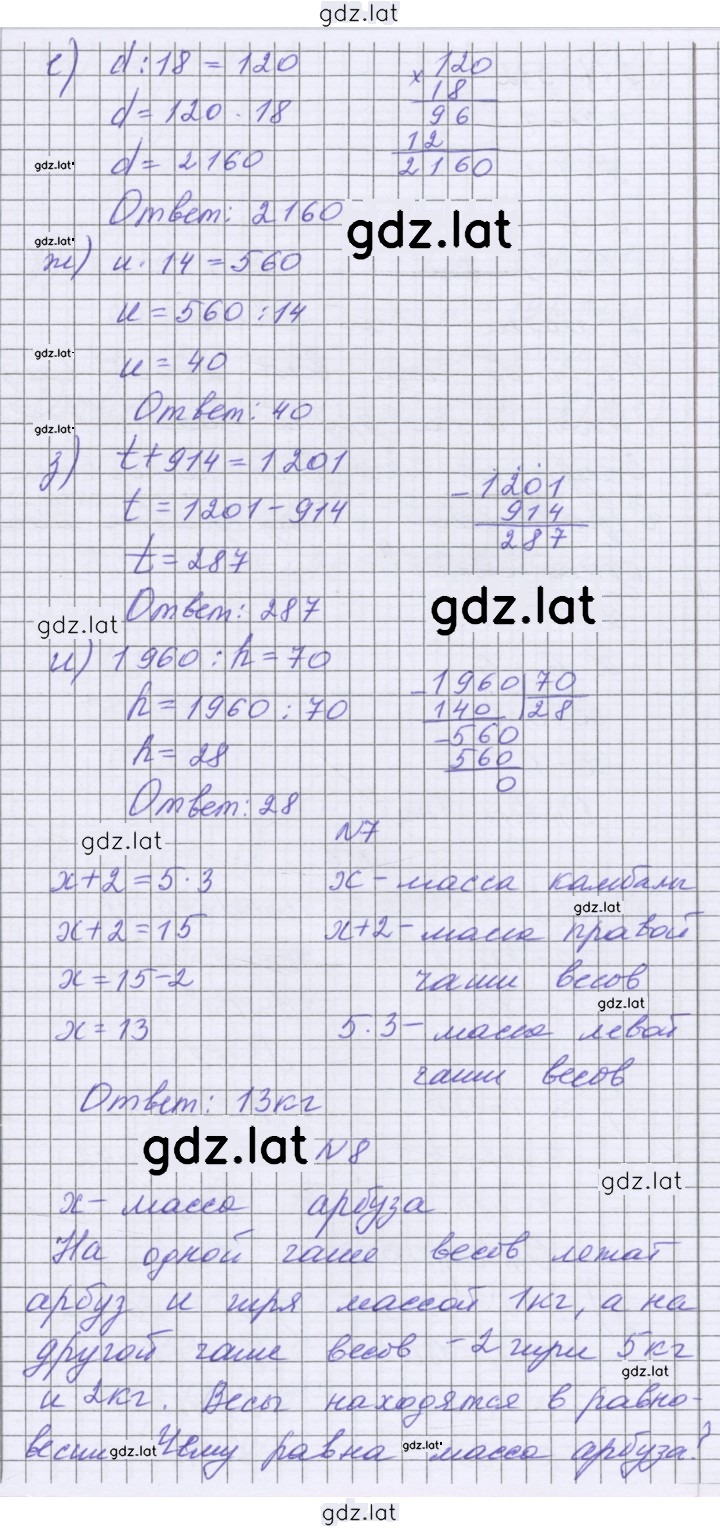 gdz.lat
е) d : 18 = 120
× 120
18
96
12
2160
d = 120 · 18
gdz.lat
d = 2160
Ответ: 2160
gdz.lat
gdz.lat
ж) u · 14 = 560
u = 560 : 14
gdz.lat
u = 40
Ответ: 40
gdz.lat
з) t + 914 = 1201
t = 1201 - 914
- 1201
914
287
t = 287
Ответ: 287
gdz.lat
gdz.lat
и) 1960 : h = 70
h = 1960 : 70
- 1960 70
140 28
- 560
560
0
h = 28
Ответ: 28
gdz.lat
№7
x + 2 = 5 · 3
x - масса камбалы
gdz.lat
x + 2 = 15
x + 2 - масса правой
чаши весов
x = 15 - 2
gdz.lat
x = 13
5 · 3 - масса левой
чаши весов
Ответ: 13кг
gdz.lat
№8
gdz.lat
x - масса арбуза
На одной чаше весов лежат
арбуз и гиря массой 1кг, а на
другой чаше весов - 2 гири 5кг
gdz.lat
и 2кг. Весы находятся в равно-
весии. Чему равна масса арбуза?
gdz.lat
gdz.lat
gdz.lat